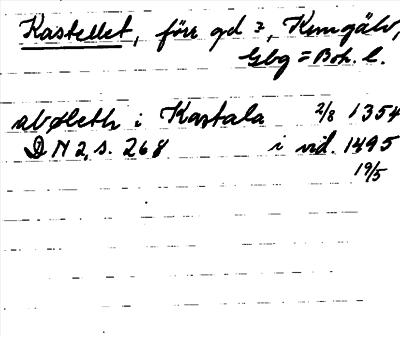 Kastellet, förr gd ?, Kungälv,
Gbg = Boh. l.
abøleth i Kastala 2/8 1354
DN 2, s. 268 i vid. 1495
19/5